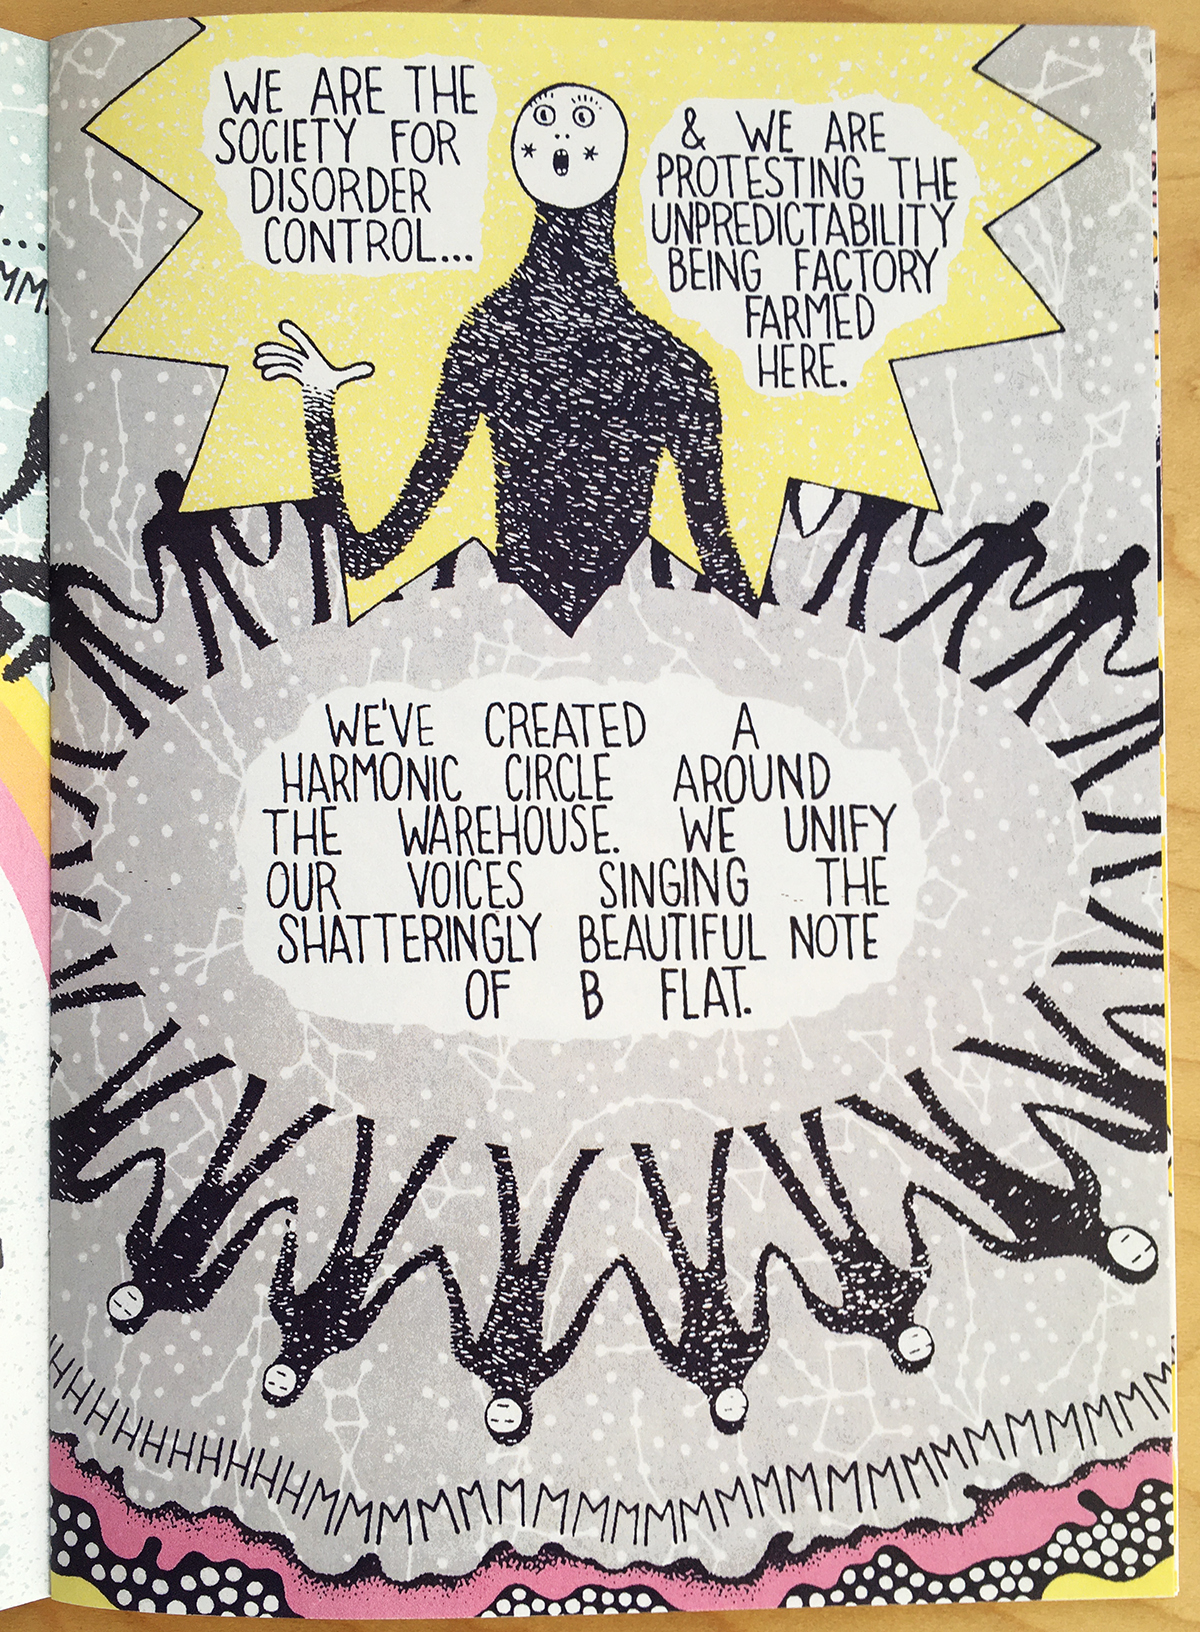 WE ARE THE
SOCIETY FOR
DISORDER
CONTROL...
& WE ARE
PROTESTING THE
UNPREDICTABILITY
BEING FACTORY
FARMED
HERE.
WE'VE CREATED A
HARMONIC CIRCLE AROUND
THE WAREHOUSE. WE UNIFY
OUR VOICES SINGING THE
SHATTERINGLY BEAUTIFUL NOTE
OF B FLAT.
HHHHHHHHHHHMMMMMMMMMMMMMMMMMMMMMMMM